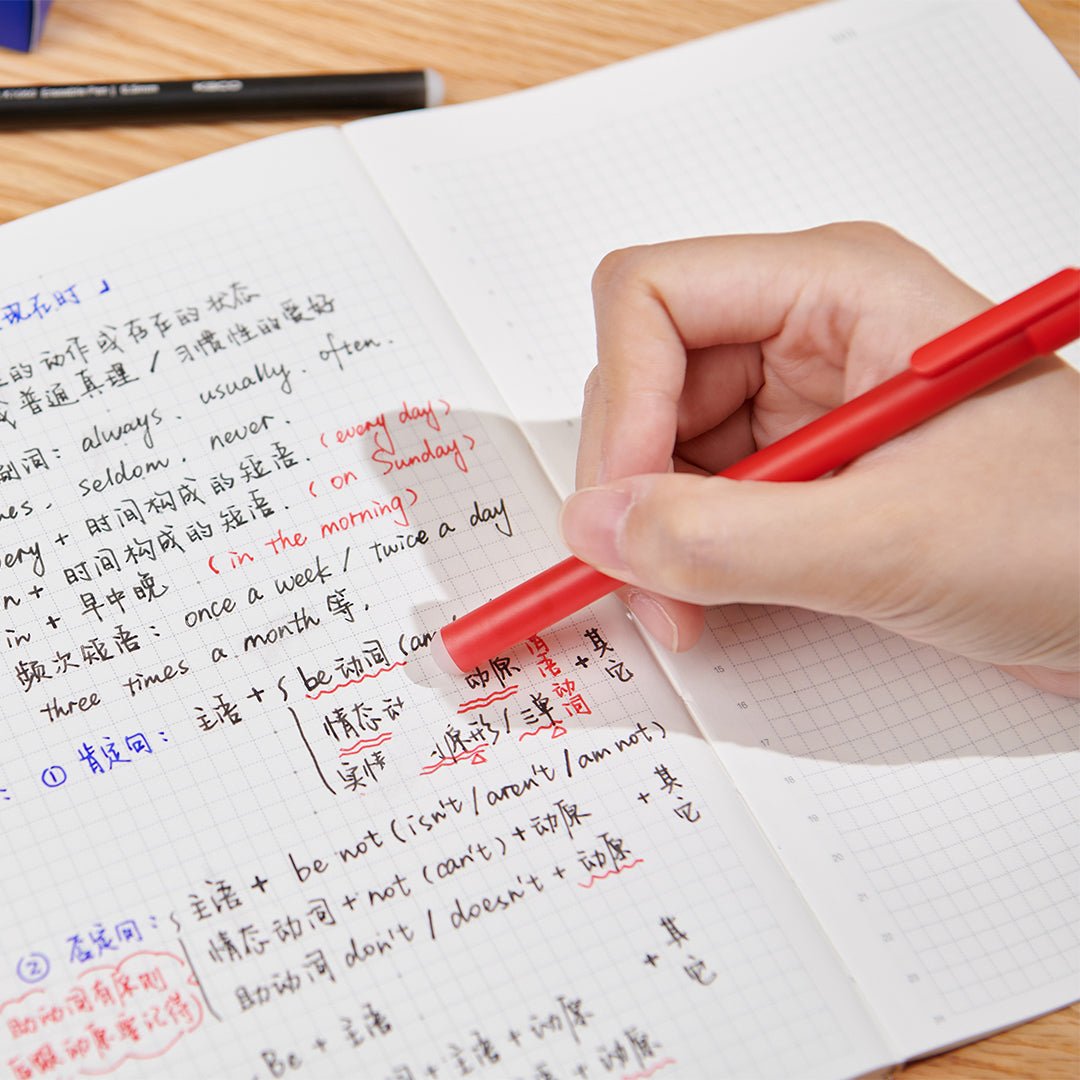 Erasable Pen | 0.5mm KACO
现在时」
的动作或存在的状态
普通真理 / 习惯性的爱好
always. usually. often.
seldom. never.
+ 时间构成的短语. (every day)
+ 时间构成的短语. (on Sunday)
in + 早中晚 (in the morning)
频次短语: once a week / twice a day
three times a month 等.
① 肯定句: 主语 + be动词 (am
情态动 动原 + 其它
实情 原形 / 三单
情语动词
② 否定句: 主语 + be not (isn't / aren't / am not)
情态动词 + not (can't) + 动原 + 其它
助动词 don't / doesn't + 动原
助动词有原则
后跟动原要记得
Be + 主语 + 其它
+ 主语 + 动原
+ 动原
15
16
17
18
19
20
21
22
23
24